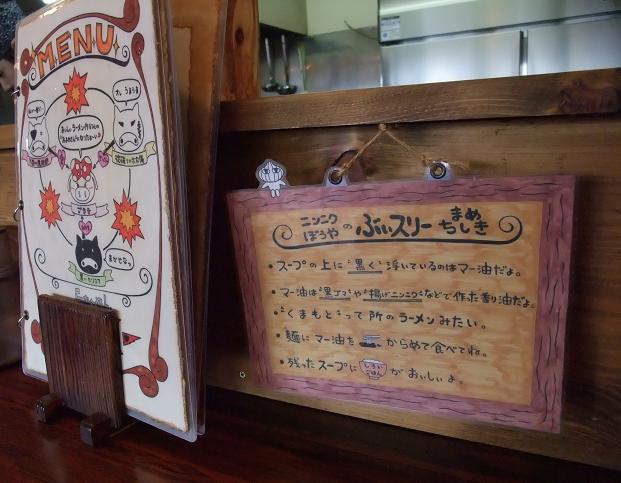 MENU
ニンニク
ぼうや
の ぶぃスリー
まめ
ちしき
・スープの上に"黒く"浮いているのはマー油だよ。
・マー油は"黒ゴマ"や"揚げニンニク"などで作た香り油だよ。
・"くまもと"って所のラーメンみたい。
・麺にマー油を からめて食べてね。
・残ったスープに しろい ごはん がおいしぃよ。
オレ うまうま
ブタ子
まかせなっ